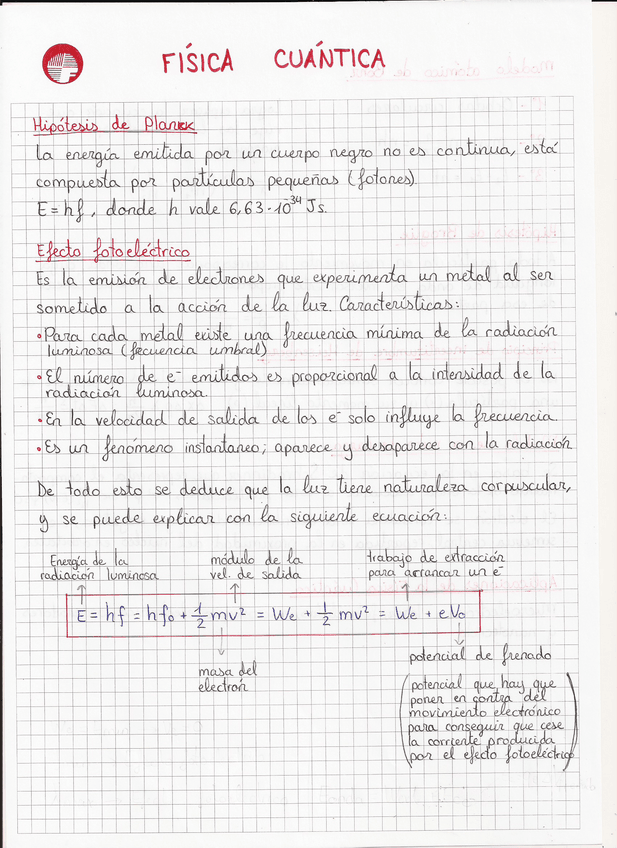 FÍSICA CUÁNTICA
Hipótesis de Planck
La energía emitida por un cuerpo negro no es continua, está
compuesta por partículas pequeñas (fotones)
E = hf, donde h vale 6,63·10⁻³⁴ Js.
Efecto fotoeléctrico
Es la emisión de electrones que experimenta un metal al ser
sometido a la acción de la luz. Características:
•Para cada metal existe una frecuencia mínima de la radiación
luminosa (fecuencia umbral)
•El número de e⁻ emitidos es proporcional a la intensidad de la
radiación luminosa.
•En la velocidad de salida de los e⁻ solo influye la frecuencia.
•Es un fenómeno instantaneo; aparece y desaparece con la radiación
De todo esto se deduce que la luz tiene naturaleza corpuscular,
y se puede explicar con la siguiente ecuación:
Energía de la
radiación luminosa
módulo de la
vel. de salida
trabajo de extracción
para arrancar un e⁻
E = hf = hf₀ + 1/2 mv² = We + 1/2 mv² = We + eV₀
masa del
electrón
potencial de frenado
(potencial que hay que
poner en contra del
movimiento electrónico
para conseguir que cese
la corriente producida
por el efecto fotoeléctrico)